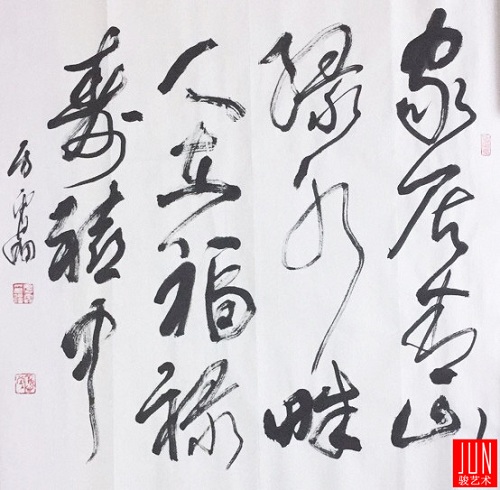 家居青山
绿水畔
人在福禄
寿禧中
JUN
骏艺术